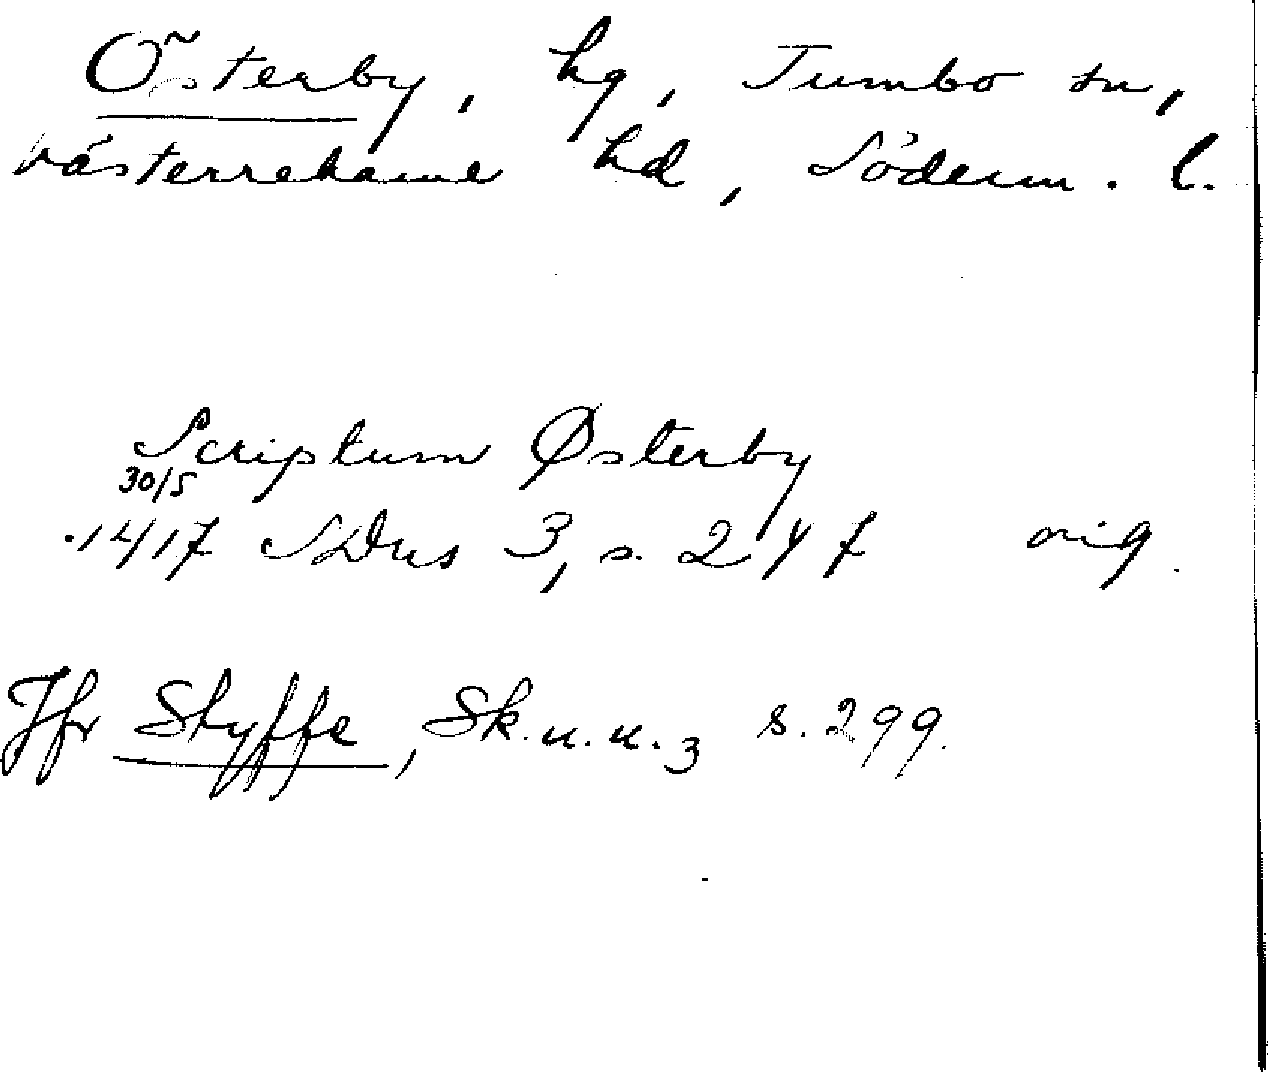 Österby, hg, Jumbo sn,
Västerrekarne hd, Söderm. l.
Scriptum Østerby
30/5
1417 SDns 3, s. 247 orig.
Jfr Styffe, Sk. u. u. 3 s. 299.